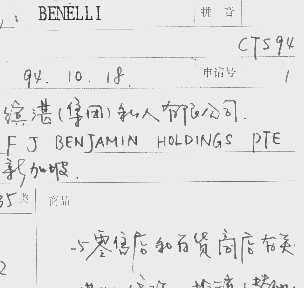 : BENELLI
拼音
CTS94
94. 10. 18. 申请号 1
缤湛(集团)私人有限公司.
F J BENJAMIN HOLDINGS PTE
新加坡.
35类 商品
与零售店和百货商店有关
2